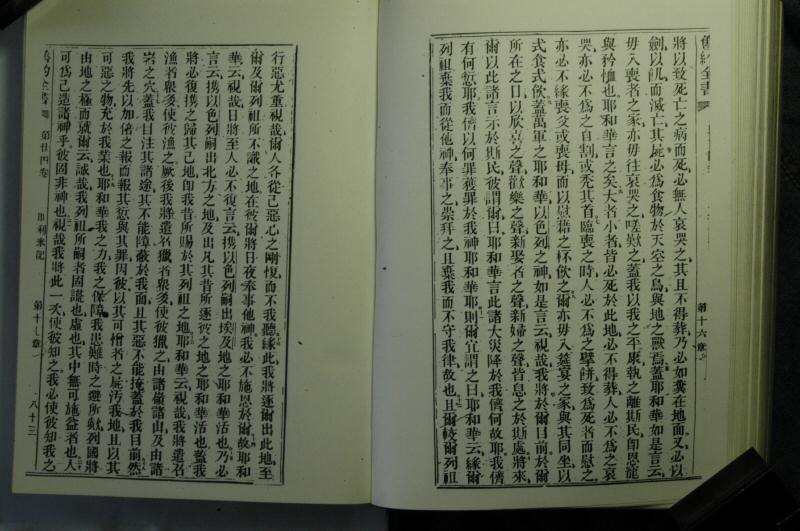 舊約全書
第十六章
將以致死亡之病而死必無人哀哭之其且不得葬乃必如糞在地面又必以
劍以飢而滅亡其屍必爲食物於天空之鳥與地之獸焉蓋耶和華如是言云
毋入喪者之家亦毋往哀哭之嗟歎之蓋我以我之平康執之離斯民即恩寵
與矜恤也耶和華言之矣大者小者皆必死於此地必不得葬人必不爲之哀
哭亦必不爲之自割或禿其首臨喪之時人必不爲之擘餅致爲死者而慰之
亦必不緣喪父或喪母而以慰藉之杯飲之爾亦毋入筵宴之家與其同坐以
式食式飲蓋萬軍之耶和華以色列之神如是言云視哉我將於爾目前於爾
所在之日以欣喜之聲歡樂之聲新娶者之聲新婦之聲皆息之於斯處將來
爾以此諸言示於斯民彼謂爾曰耶和華言此諸大災降於我儕何故耶我儕
有何愆耶我儕以何罪獲罪於我神耶和華耶則爾宜謂之曰耶和華云緣爾
列祖棄我而從他神奉事之崇拜之且棄我而不守我律故也且爾較爾列祖
行惡尤重視哉爾人各從己惡心之剛愎而不我聽緣此我將逐爾出此地至
爾及爾列祖所不識之地在彼爾將日夜奉事他神我必不施恩於爾故耶和
華云視哉日將至人必不復言云攜以色列嗣出埃及地之耶和華活也乃必
言云攜以色列嗣出北方之地及出凡其昔所逐彼之地之耶和華活也蓋我
將必復攜之歸其己地即我昔所賜於其列祖之地耶和華云視哉我將遣召
漁者衆多使彼漁之厥後我將遣召獵者衆多使彼獵之由諸嶺諸山及由諸
岩之穴蓋我目注其諸途其不能障蔽於我而且其惡不能掩蓋於我目前然
我將先以加倍之報而報其愆與其罪因彼以其可憎者之屍汚我地且以其
可惡之物充於我業也耶和華我之力我之保障我患難時之避所歟列國將
由地之極而就爾云誠哉我列祖所嗣者固謊也虛也其中無可施益者也人
可爲己造諸神乎彼固非神也視哉我將此一次使彼知之我必使彼知我之
舊約全書
第廿四卷
耶利米記
第十七章
八十三